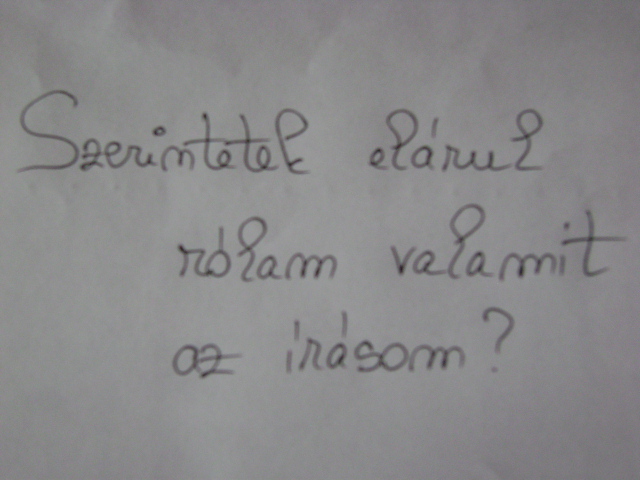 Szerintetek elárul
rólam valamit
az írásom?